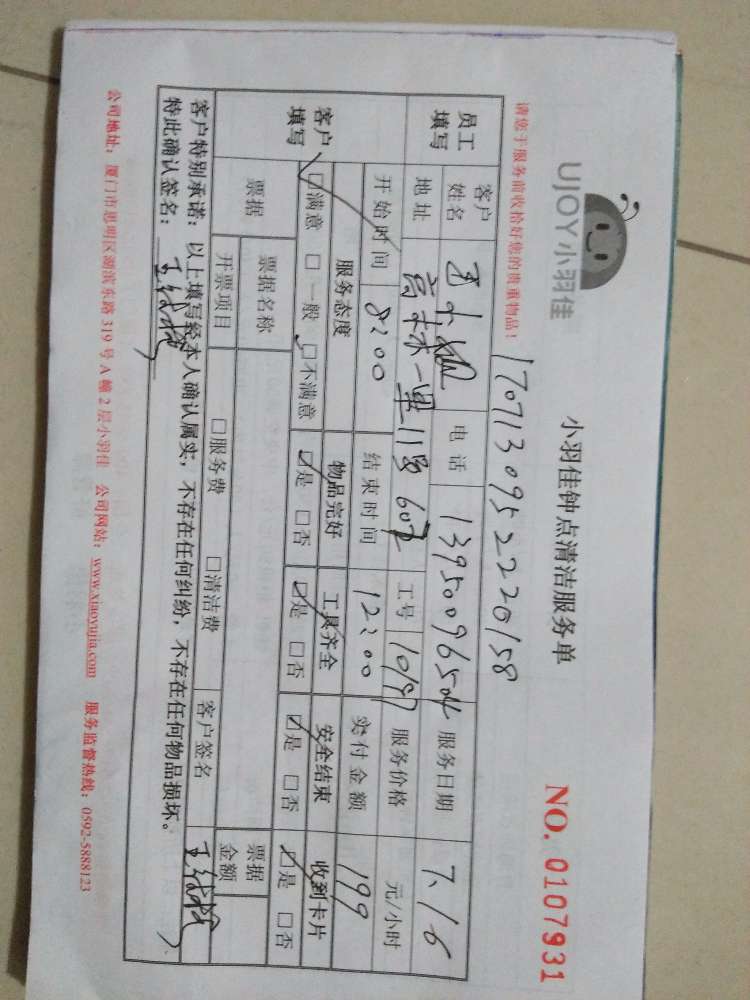 UJOY小羽佳
小羽佳钟点清洁服务单
NO. 0107931
请您于服务前收拾好您的贵重物品!
17071309522201​58
员工填写 客户姓名 小姐 电话 13950096504 服务日期 7.16
地址 高林一里11号602 工号 10197 服务价格 元/小时
开始时间 8:00 结束时间 12:00 实付金额 199
客户填写 服务态度 物品完好 工具齐全 安全结束 收到卡片
□满意 □一般 □不满意 ☑是 □否 ☑是 □否 ☑是 □否 ☑是 □否
票据 票据名称 □服务费 □清洁费 客户签名 票据金额
开票项目
客户特别承诺:以上填写经本人确认属实,不存在任何纠纷,不存在任何物品损坏。
特此确认签名:
公司地址:厦门市思明区湖滨东路319号A幢2层小羽佳 公司网站:www.xiaoyujia.com 服务监督热线:0592-5888123